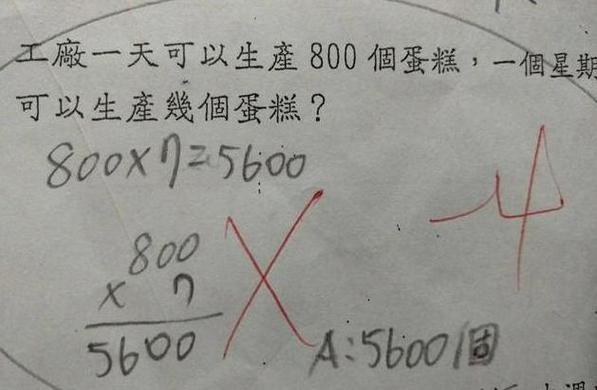 工廠一天可以生產 800 個蛋糕，一個星期
可以生產幾個蛋糕？
800×7=5600
800
× 7
5600
A:5600個
-4